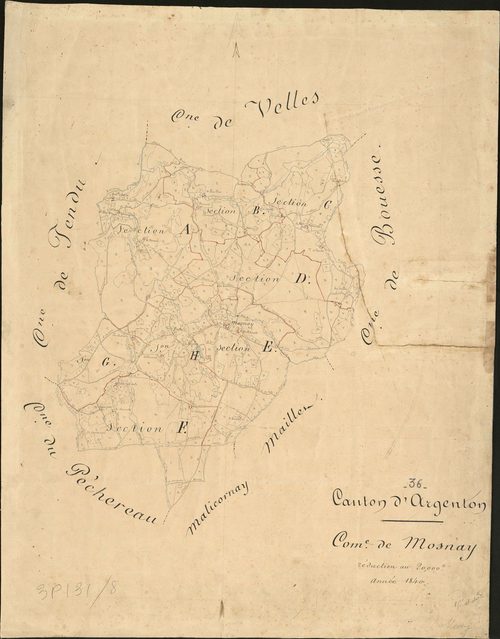 Cne. de Velles
Cne de Tendu
Cne de Bouesse.
Section A
Section B.
Section C
Section D.
Section E.
Son G.
Son H
Section F.
Mosnay
Cne du Pêchereau
Malicornay
Maillet
-36-
Canton d'Argenton
Come. de Mosnay
réduction au 20,000e
année 1840
3P131/8